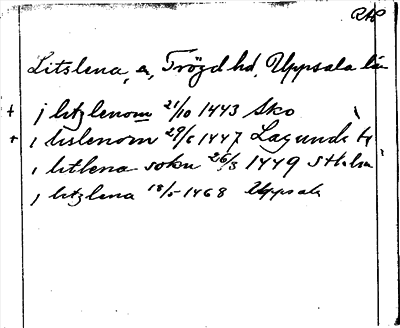 RAP
Litslena, a, Trögd hd, Uppsala län
+ j litzlenom 21/10 1443 Sko
+ i lislenom 29/6 1447 Lagunda
i litlena sokn 26/3 1449 Sthlm
j litzlena 1468 Uppsala